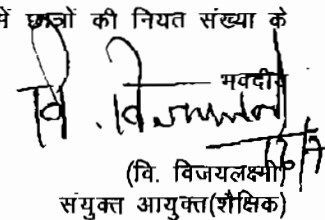 में छात्रों की नियत संख्या के
भवदीय
वि. विजयलक्ष्मी
(वि. विजयलक्ष्मी)
संयुक्त आयुक्त(शैक्षिक)